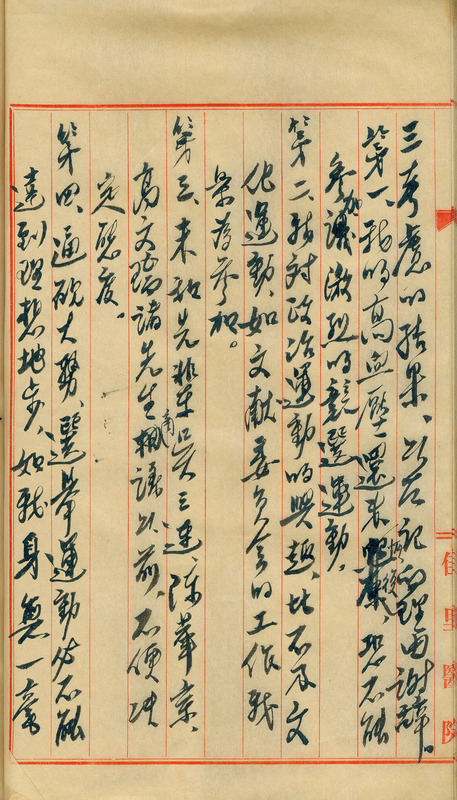 三考慮的結果、以左記的理由謝辭。
第一、我的高血壓還未恢復、恐不能
參加激烈的競選運動、
第二、我對政治運動的興趣、比不及文
化運動、如文獻委員會的工作我
為參加。
第三、未和先輩吳三連、陳華宗、
高文瑞諸先生相商議以前、不便決
定態度。
第四、通觀大勢、選舉運動必不能
達到理想地步、如我身無一毫
佳里醫院